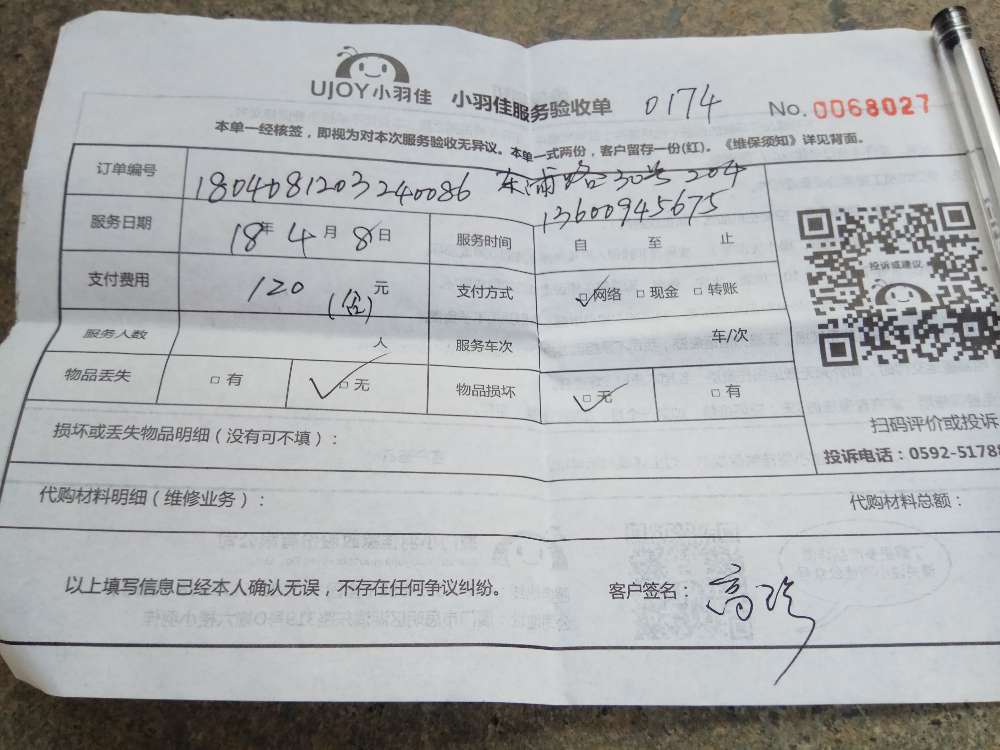 UJOY小羽佳 小羽佳服务验收单 0174 No.0068027
本单一经核签，即视为对本次服务验收无异议。本单一式两份，客户留存一份(红)。《维保须知》详见背面。
订单编号 1804081203240086 东浦路30号 204
13600945675
服务日期 18年 4月 8日 服务时间 自 至 止
支付费用 120 元 支付方式 □网络 □现金 □转账
服务人数 人 服务车次 车/次
物品丢失 □有 □无 物品损坏 □无 □有
投诉或建议
扫码评价或投诉
投诉电话：0592-5178
损坏或丢失物品明细（没有可不填）：
代购材料明细（维修业务）： 代购材料总额：
以上填写信息已经本人确认无误，不存在任何争议纠纷。 客户签名：高珍